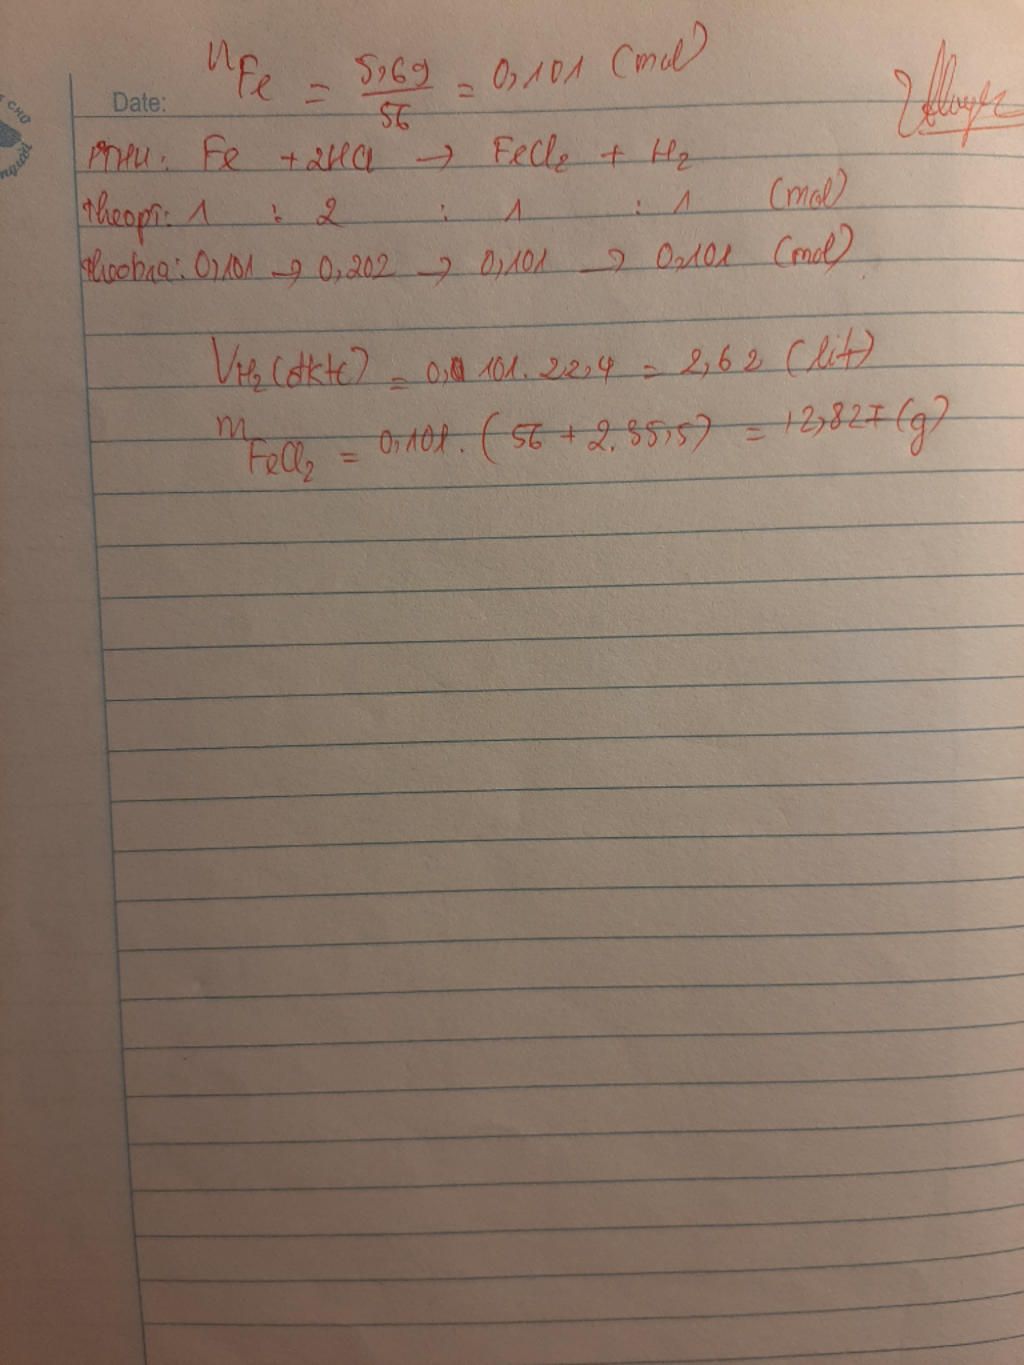 nFe = 5,69/56 = 0,101 (mol)
Date:
PTHH: Fe + 2HCl → FeCl2 + H2
theopt: 1 : 2 : 1 : 1 (mol)
theobra: 0,101 → 0,202 → 0,101 → 0,101 (mol)
VH2(đktc) = 0,101.22,4 = 2,62 (lit)
mFeCl2 = 0,101.(56 + 2.35,5) = 12,827(g)